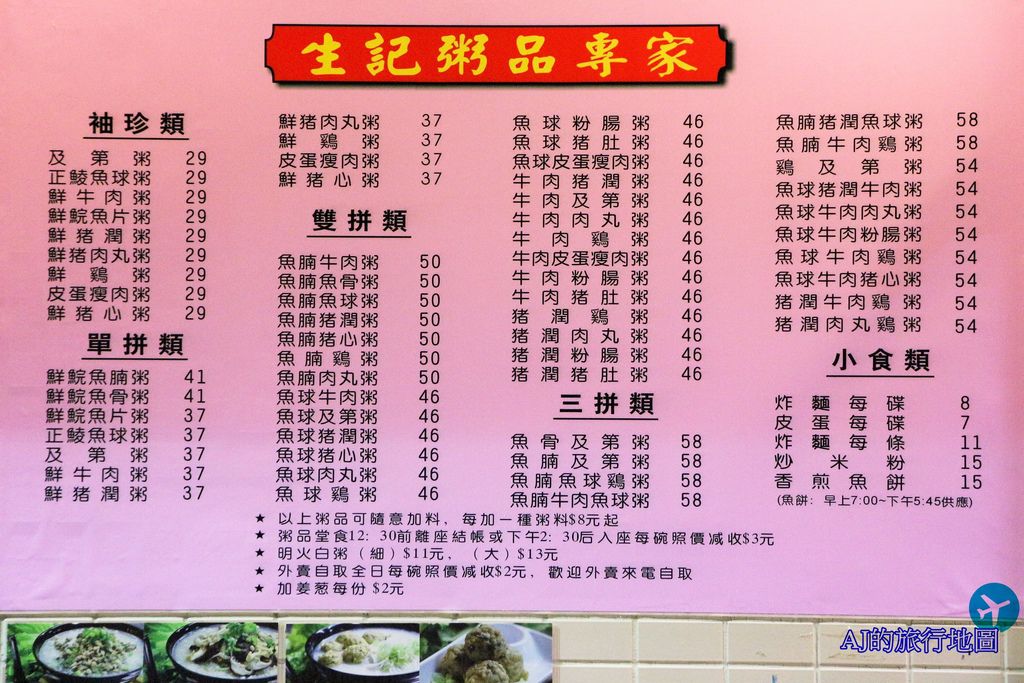 生記粥品專家
袖珍類
及第粥 29
正鯪魚球粥 29
鮮牛肉粥 29
鮮鯇魚片粥 29
鮮猪潤粥 29
鮮猪肉丸粥 29
鮮鷄粥 29
皮蛋瘦肉粥 29
鮮猪心粥 29
單拼類
鮮鯇魚腩粥 41
鮮鯇魚骨粥 41
鮮鯇魚片粥 37
正鯪魚球粥 37
及第粥 37
鮮牛肉粥 37
鮮猪潤粥 37
鮮猪肉丸粥 37
鮮鷄粥 37
皮蛋瘦肉粥 37
鮮猪心粥 37
雙拼類
魚腩牛肉粥 50
魚腩魚骨粥 50
魚腩魚球粥 50
魚腩猪潤粥 50
魚腩猪心粥 50
魚腩鷄粥 50
魚腩肉丸粥 50
魚球牛肉粥 46
魚球及第粥 46
魚球猪潤粥 46
魚球猪心粥 46
魚球肉丸粥 46
魚球鷄粥 46
魚球粉腸粥 46
魚球猪肚粥 46
魚球皮蛋瘦肉粥 46
牛肉猪潤粥 46
牛肉及第粥 46
牛肉肉丸粥 46
牛肉鷄粥 46
牛肉皮蛋瘦肉粥 46
牛肉粉腸粥 46
牛肉猪肚粥 46
猪潤鷄粥 46
猪潤肉丸粥 46
猪潤粉腸粥 46
猪潤猪肚粥 46
三拼類
魚骨及第粥 58
魚腩及第粥 58
魚腩魚球鷄粥 58
魚腩牛肉魚球粥 58
魚腩猪潤魚球粥 58
魚腩牛肉鷄粥 58
鷄及第粥 54
魚球猪潤牛肉粥 54
魚球牛肉肉丸粥 54
魚球牛肉粉腸粥 54
魚球牛肉鷄粥 54
魚球牛肉猪心粥 54
猪潤牛肉鷄粥 54
猪潤肉丸鷄粥 54
小食類
炸麵每碟 8
皮蛋每碟 7
炸麵每條 11
炒米粉 15
香煎魚餅 15
(魚餅: 早上7:00~下午5:45供應)
★ 以上粥品可隨意加料, 每加一種粥料$8元起
★ 粥品堂食12: 30前離座結帳或下午2: 30后入座每碗照價減收$3元
★ 明火白粥（細）$11元, （大）$13元
★ 外賣自取全日每碗照價減收$2元, 歡迎外賣來電自取
★ 加姜葱每份 $2元
AJ的旅行地圖